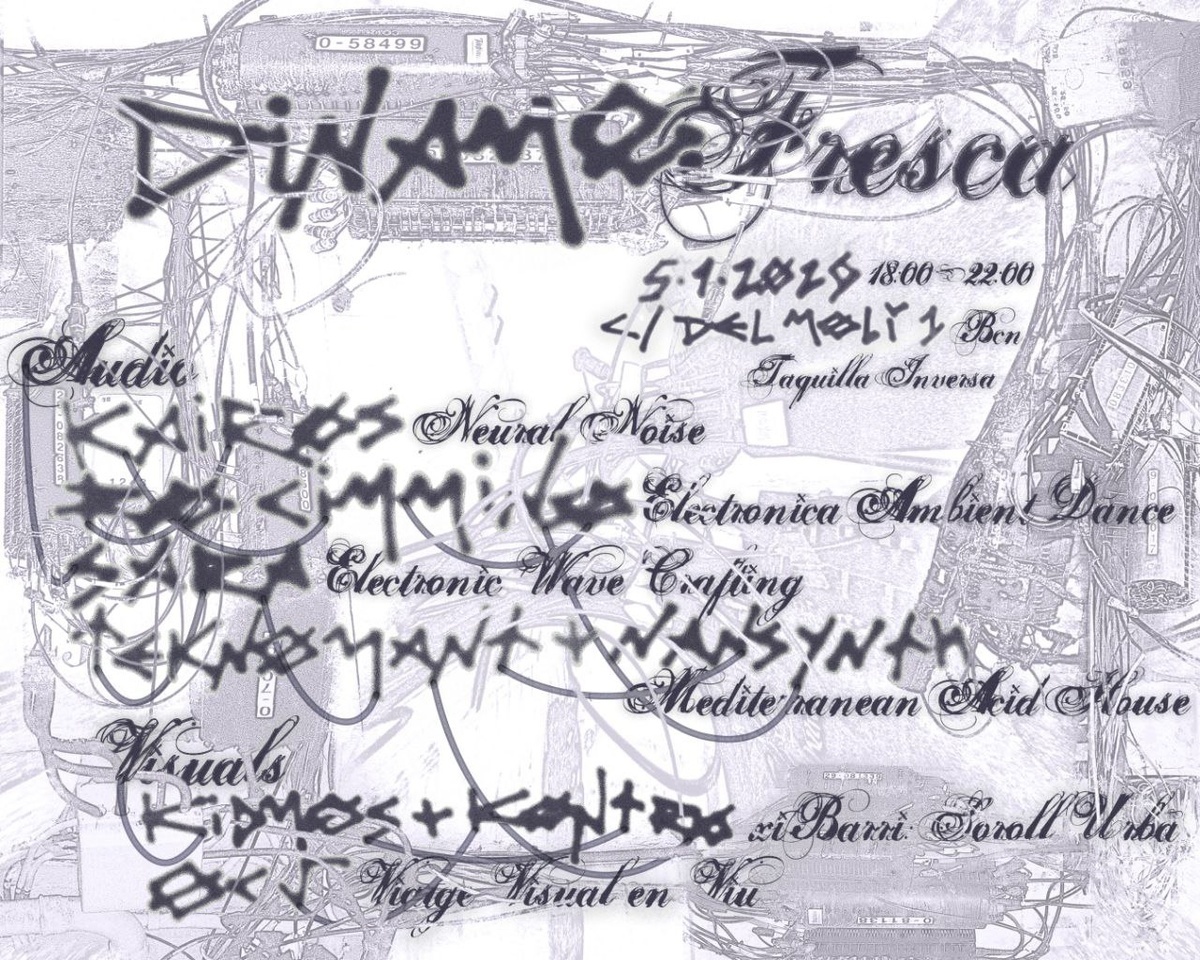 0-58499
DiNAMO Fresca
18:00 - 22:00
C/ DEL MOLi 1 Bcn
Taquilla Inversa
Audio
KAiROS Neural Noise
Electronica Ambient Dance
Electronic Wave Crafting
TEKNOMANT + NAUSYNTH
Mediterranean Acid House
Visuals
KiDMOS + KONTRO xiBarri: Soroll Urbà
Viatge Visual en Viu